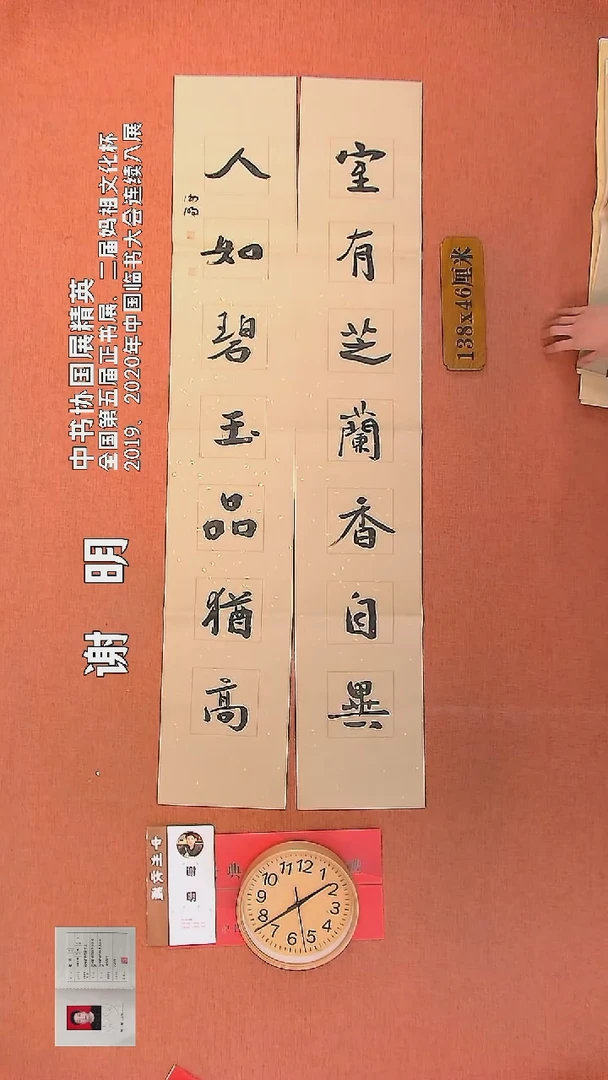 室有芝蘭香自異
人如碧玉品猶高
138x46厘米
中书协国展精英
全国第五届正书展、二届妈祖文化杯
2019、2020年中国临书大会连续入展
谢 明
12
1
2
3
4
5
6
7
8
9
10
11
典